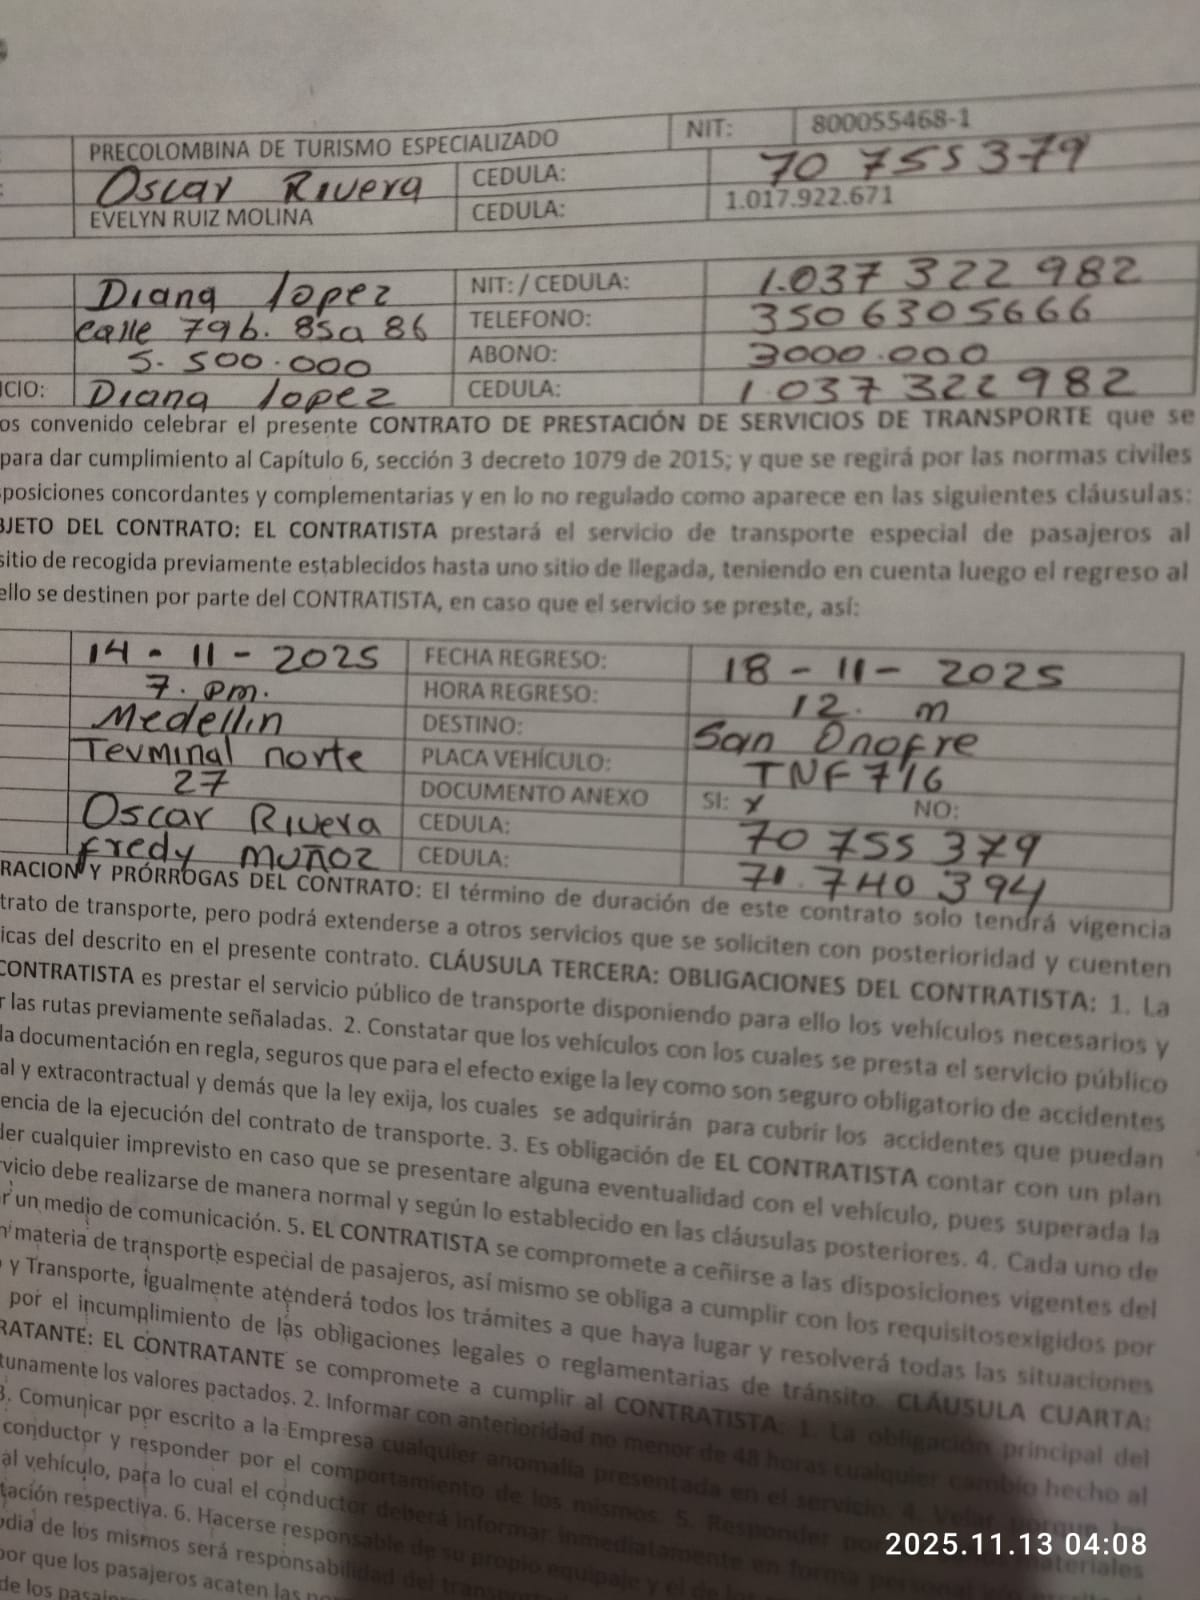 PRECOLOMBINA DE TURISMO ESPECIALIZADO NIT: 800055468-1
Oscar Rivera CEDULA: 70 755 379
EVELYN RUIZ MOLINA CEDULA: 1.017.922.671
Diana lopez NIT: / CEDULA: 1.037 322 982
calle 79b. 85a 86 TELEFONO: 350 6305666
5.500.000 ABONO: 3000.000
ICIO: Diana lopez CEDULA: 1.037 322 982
os convenido celebrar el presente CONTRATO DE PRESTACIÓN DE SERVICIOS DE TRANSPORTE que se
para dar cumplimiento al Capítulo 6, sección 3 decreto 1079 de 2015; y que se regirá por las normas civiles
sposiciones concordantes y complementarias y en lo no regulado como aparece en las siguientes cláusulas:
BJETO DEL CONTRATO: EL CONTRATISTA prestará el servicio de transporte especial de pasajeros al
sitio de recogida previamente establecidos hasta uno sitio de llegada, teniendo en cuenta luego el regreso al
ello se destinen por parte del CONTRATISTA, en caso que el servicio se preste, así:
14 - 11 - 2025 FECHA REGRESO: 18 - 11 - 2025
7. pm. HORA REGRESO: 12. m
Medellin DESTINO: San Onofre
Terminal norte PLACA VEHÍCULO: TNF716
27 DOCUMENTO ANEXO SI: X NO:
Oscar Rivera CEDULA: 70 755 379
fredy MUÑOZ CEDULA: 71.740 394
RACION Y PRÓRROGAS DEL CONTRATO: El término de duración de este contrato solo tendrá vigencia
trato de transporte, pero podrá extenderse a otros servicios que se soliciten con posterioridad y cuenten
icas del descrito en el presente contrato. CLÁUSULA TERCERA: OBLIGACIONES DEL CONTRATISTA: 1. La
CONTRATISTA es prestar el servicio público de transporte disponiendo para ello los vehículos necesarios y
r las rutas previamente señaladas. 2. Constatar que los vehículos con los cuales se presta el servicio público
la documentación en regla, seguros que para el efecto exige la ley como son seguro obligatorio de accidentes
al y extracontractual y demás que la ley exija, los cuales se adquirirán para cubrir los accidentes que puedan
encia de la ejecución del contrato de transporte. 3. Es obligación de EL CONTRATISTA contar con un plan
der cualquier imprevisto en caso que se presentare alguna eventualidad con el vehículo, pues superada la
rvicio debe realizarse de manera normal y según lo establecido en las cláusulas posteriores. 4. Cada uno de
r un medio de comunicación. 5. EL CONTRATISTA se compromete a ceñirse a las disposiciones vigentes del
n materia de transporte especial de pasajeros, así mismo se obliga a cumplir con los requisitosexigidos por
y Transporte, igualmente atenderá todos los trámites a que haya lugar y resolverá todas las situaciones
por el incumplimiento de las obligaciones legales o reglamentarias de tránsito. CLÁUSULA CUARTA:
RATANTE: EL CONTRATANTE se compromete a cumplir al CONTRATISTA: 1. La obligación principal del
tunamente los valores pactados. 2. Informar con anterioridad no menor de 48 horas cualquier cambio hecho al
3. Comunicar por escrito a la Empresa cualquier anomalía presentada en el servicio. 4. Velar porque
conductor y responder por el comportamiento de los mismos. 5. Responder por materiales
al vehículo, para lo cual el conductor deberá informar inmediatamente en forma personal
tación respectiva. 6. Hacerse responsable de su propio equipaje y el de
odia de los mismos será responsabilidad del
por que los pasajeros acaten las
de los
2025.11.13 04:08